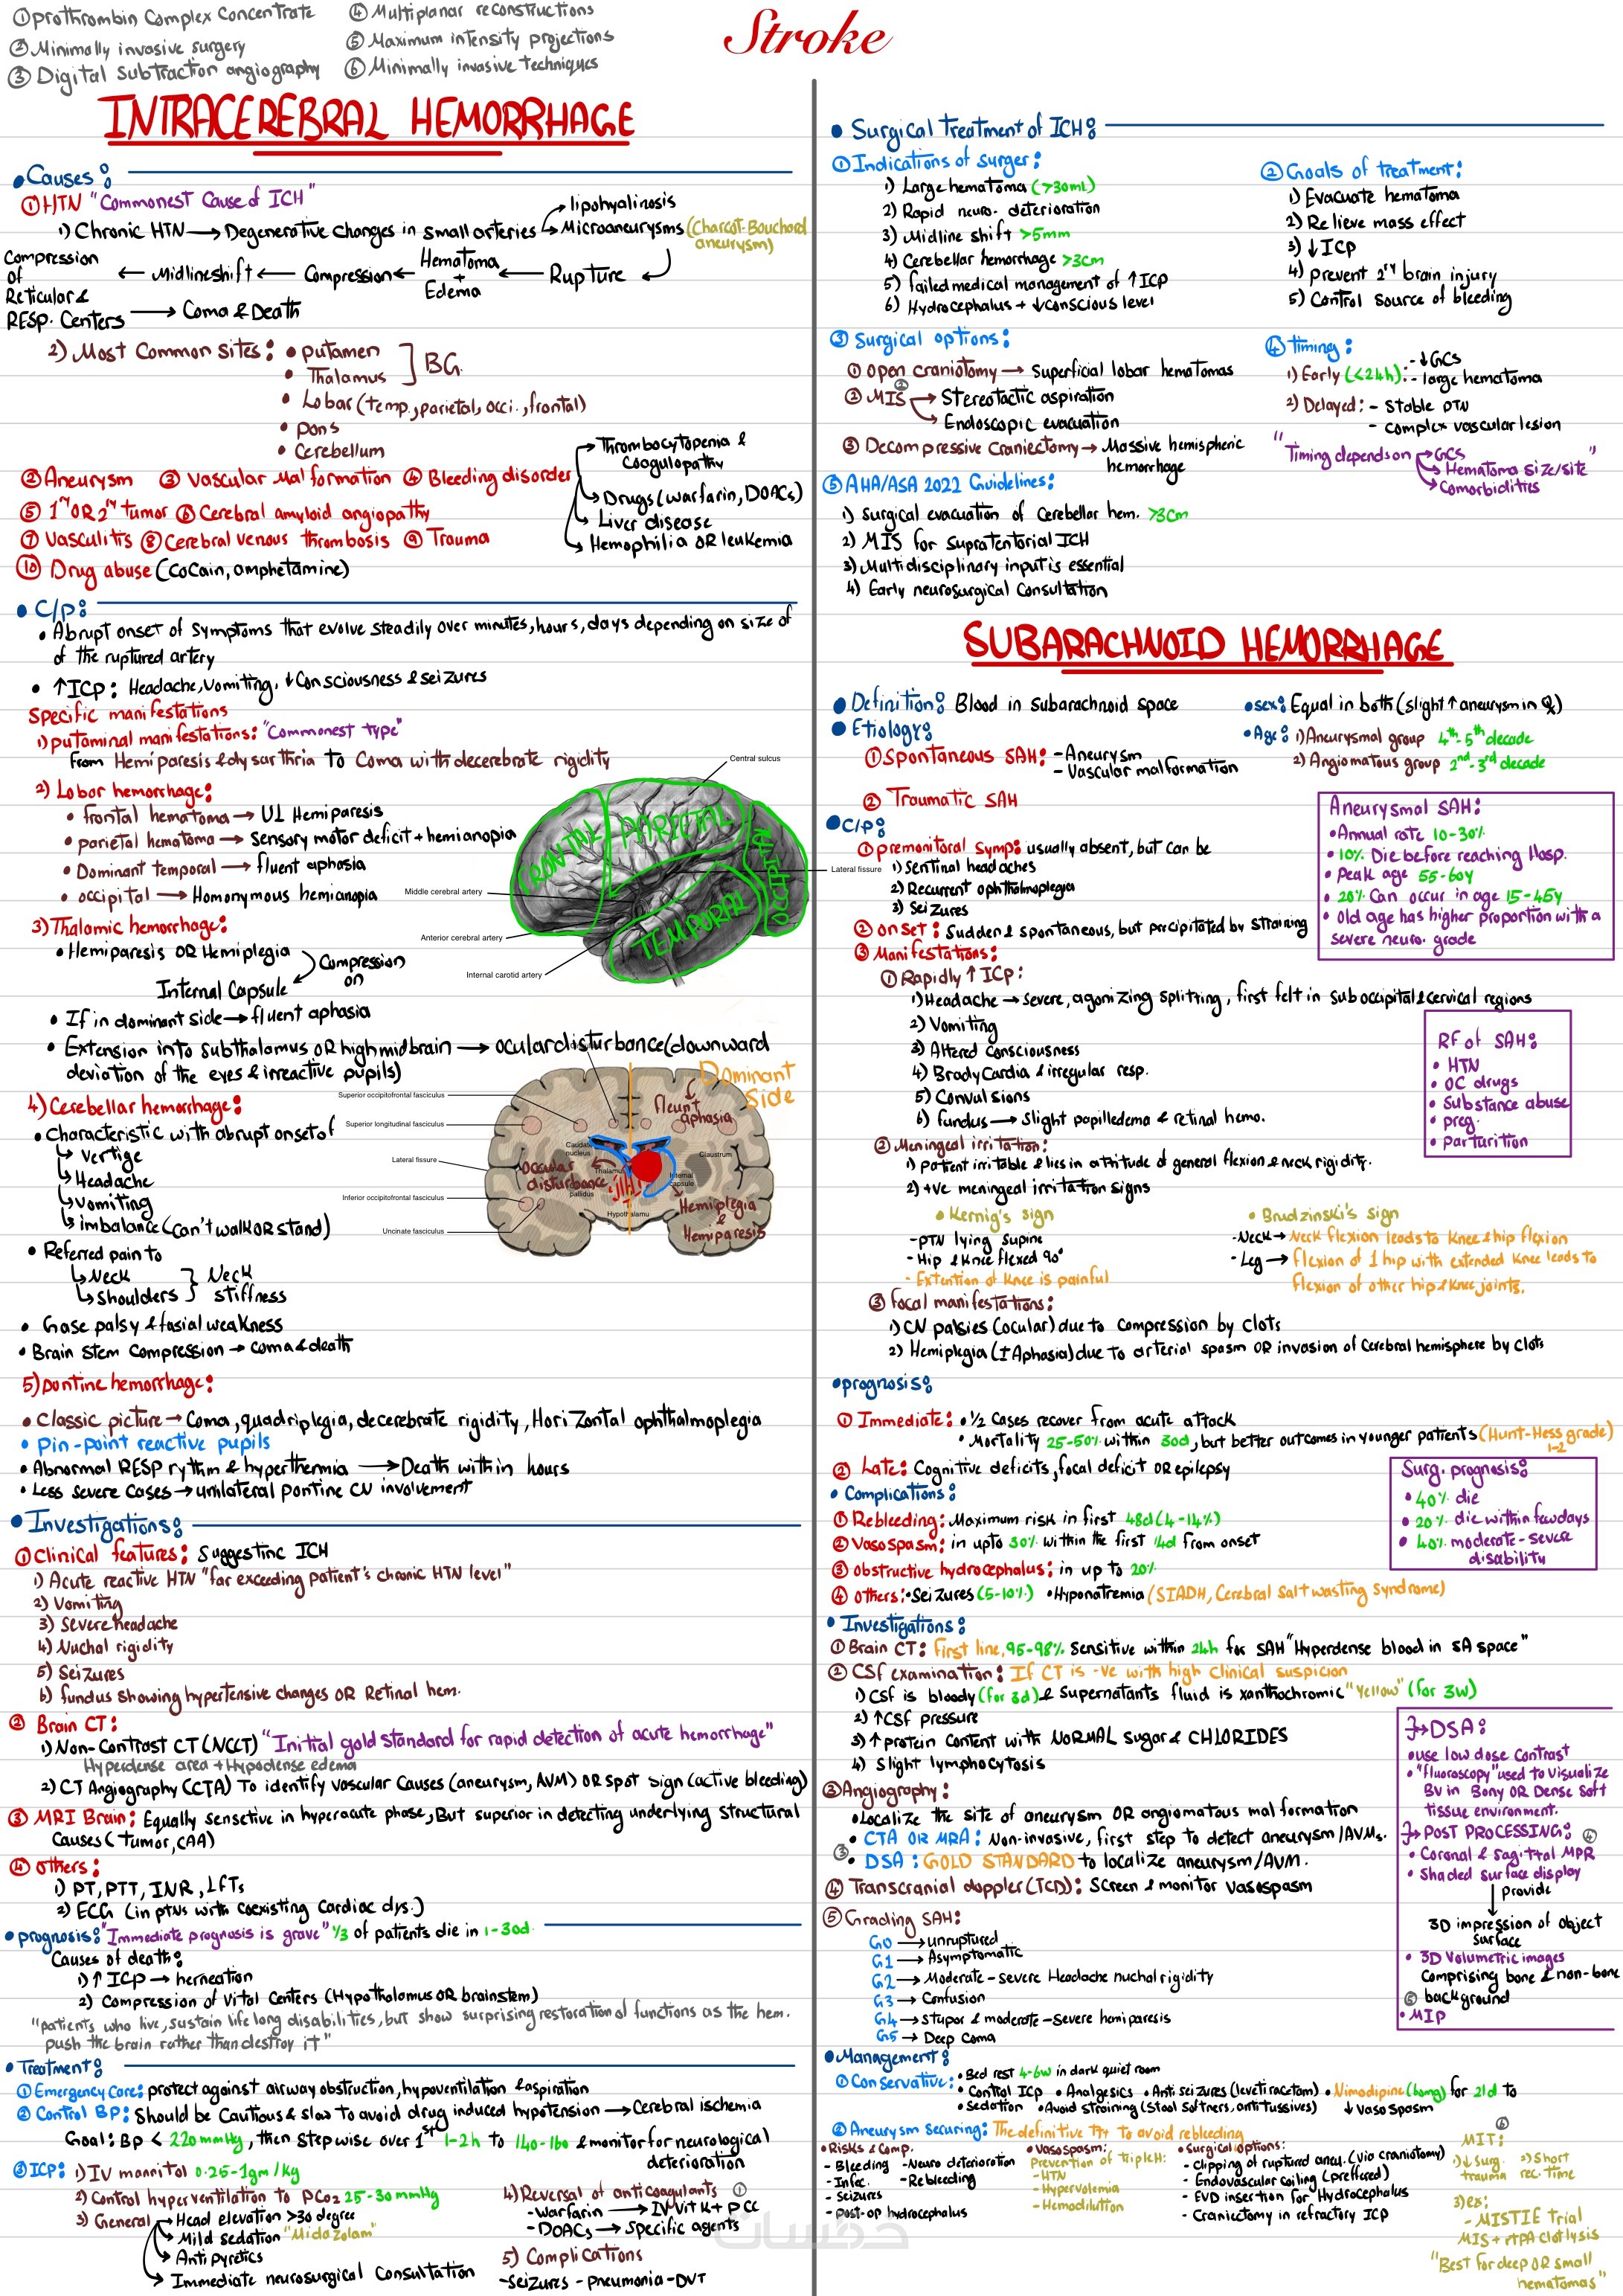 ① Prothrombin Complex Concentrate
② Minimally invasive surgery
③ Digital Subtraction angiography
④ Multiplanar reconstructions
⑤ Maximum intensity projections
⑥ Minimally invasive techniques
Stroke
INTRACEREBRAL HEMORRHAGE
• Causes:
① HTN "Commonest Cause of ICH"
1) Chronic HTN → Degenerative Changes in small arteries → lipohyalinosis
→ Microaneurysms (Charcot-Bouchard aneurysm)
Rupture → Hematoma + Edema → Compression → Midline shift → Compression of Reticular & RESP. Centers → Coma & Death
2) Most Common Sites: • putamen
• Thalamus ] BG.
• Lobar (temp., parietal, occi., frontal)
• pons
• Cerebellum
② Aneurysm ③ Vascular Malformation ④ Bleeding disorder
→ Thrombocytopenia & Coagulopathy
→ Drugs (warfarin, DOACs)
→ Liver disease
→ Hemophilia OR leukemia
⑤ 1ry OR 2ry tumor ⑥ Cerebral amyloid angiopathy
⑦ Vasculitis ⑧ Cerebral venous thrombosis ⑨ Trauma
⑩ Drug abuse (Cocain, amphetamine)
• C/P:
• Abrupt onset of Symptoms that evolve steadily over minutes, hours, days depending on size of
of the ruptured artery
• ↑ICP: Headache, Vomiting, ↓Consciousness & seizures
Specific manifestations
1) putaminal manifestations: "Commonest Type"
From Hemiparesis & dysarthria To Coma with decerebrate rigidity
2) Lobar hemorrhage:
• frontal hematoma → UL Hemiparesis
• parietal hematoma → Sensory motor deficit + hemianopia
• Dominant temporal → fluent aphasia
• occipital → Homonymous hemianopia
Central sulcus
Lateral fissure
Middle cerebral artery
Anterior cerebral artery
Internal carotid artery
FRONTAL
PARIETAL
OCCIPITAL
TEMPORAL
3) Thalamic hemorrhage:
• Hemiparesis OR Hemiplegia
Compression on
Internal Capsule
• If in dominant side → fluent aphasia
• Extension into subthalamus OR high midbrain → ocular disturbance (downward
deviation of the eyes & irreactive pupils)
4) Cerebellar hemorrhage:
• Characteristic with abrupt onset of
↳ Vertige
↳ Headache
↳ Vomiting
↳ imbalance (can't walk OR stand)
• Referred pain to
↳ Neck
↳ Shoulders } Neck stiffness
• Gase palsy & fasial weakness
• Brain stem Compression → coma & death
Superior occipitofrontal fasciculus
Superior longitudinal fasciculus
Lateral fissure
Inferior occipitofrontal fasciculus
Uncinate fasciculus
Caudate nucleus
Thalamus
pallidus
Hypothalamu
Claustrum
Internal capsule
Dominant Side
fleunt aphasia
Ocular disturbance
Hemiplegia & Hemiparesis
5) pontine hemorrhage:
• Classic picture → Coma, quadriplegia, decerebrate rigidity, Horizontal ophthalmoplegia
• Pin-point reactive pupils
• Abnormal RESP rythm & hyperthermia → Death within hours
• Less severe Cases → unilateral pontine CN involvement
• Investigations:
① Clinical features: Suggestinc ICH
1) Acute reactive HTN "far exceeding patient's chronic HTN level"
2) Vomiting
3) Severe headache
4) Nuchal rigidity
5) Seizures
6) fundus showing hypertensive changes OR Retinal hem.
② Brain CT:
1) Non-Contrast CT (NCCT) "Initial gold standard for rapid detection of acute hemorrhage"
Hyperdense area + Hypodense edema
2) CT Angiography (CTA) To identify Vascular Causes (aneurysm, AVM) OR Spot sign (active bleeding)
③ MRI Brain: Equally sensetive in hyperacute phase, But superior in detecting underlying structural
Causes (tumor, CAA)
④ others:
1) PT, PTT, INR, LFTs
2) ECG (in ptns with coexisting Cardiac dys.)
• prognosis: "Immediate prognosis is grave" 1/3 of patients die in 1-30d
Causes of death:
1) ↑ICP → herneation
2) Compression of Vital Centers (Hypothalamus OR brainstem)
"patients who live, sustain life long disabilities, but show surprising restoration of functions as the hem.
push the brain rather than destroy it"
• Treatment:
① Emergency Care: protect against airway obstruction, hypoventilation & aspiration
② Control BP: Should be Cautious & slow to avoid drug induced hypotension → Cerebral ischemia
Goal: BP < 220 mmHg, then stepwise over 1st 1-2h to 140-160 & monitor for neurological
deterioration
③ ICP: 1) IV mannitol 0.25-1gm/Kg
2) Control hyperventilation to PCO2 25-30 mmHg
3) General → Head elevation >30 degree
→ Mild sedation "Midazolam"
→ Anti pyretics
→ Immediate neurosurgical Consultation
4) Reversal of anticoagulants ①
- Warfarin → IV Vit K + PCC
- DOACs → Specific agents
5) Complications
- Seizures - pneumonia - DVT
• Surgical Treatment of ICH:
① Indications of surger:
1) Large hematoma (>30mL)
2) Rapid neuro. deterioration
3) Midline shift >5mm
4) Cerebellar hemorrhage >3cm
5) failed medical management of ↑ICP
6) Hydrocephalus + ↓conscious level
② Goals of treatment:
1) Evacuate hematoma
2) Relieve mass effect
3) ↓ICP
4) prevent 2ry brain injury
5) Control source of bleeding
③ Surgical options:
① open craniotomy → Superficial lobar hematomas
② MIS ② → Stereotactic aspiration
→ Endoscopic evacuation
③ Decompressive Craniectomy → Massive hemispheric
hemorrhage
④ Timing:
1) Early (<24h): - ↓GCS
- large hematoma
2) Delayed: - Stable PTN
- complex vascular lesion
"Timing depends on → GCS
→ Hematoma size/site
→ Comorbidities"
⑤ AHA/ASA 2022 Guidelines:
1) Surgical evacuation of Cerebellar hem. >3cm
2) MIS for Supratentorial ICH
3) Multidisciplinary input is essential
4) Early neurosurgical Consultation
SUBARACHNOID HEMORRHAGE
• Definition: Blood in Subarachnoid space
• Etiology:
① Spontaneous SAH: - Aneurysm
- Vascular malformation
② Traumatic SAH
• sex: Equal in both (slight ↑ aneurysm in ♀)
• Age: 1) Aneurysmal group 4th-5th decade
2) Angiomatous group 2nd-3rd decade
Aneurysmal SAH:
• Annual rate 10-30%
• 10% Die before reaching Hosp.
• Peak age 55-60y
• 20% Can occur in age 15-45y
• Old age has higher proportion with a
severe neuro. grade
• C/P:
① premonitoral Symp: usually absent, but can be
1) Sentinal headaches
2) Recurrent ophthalmoplegia
3) Seizures
② onset: Sudden & spontaneous, but precipitated by straining
③ Manifestations:
① Rapidly ↑ICP:
1) Headache → severe, agonizing splitting, first felt in suboccipital & cervical regions
2) Vomiting
3) Altered Consciousness
4) Bradycardia & irregular resp.
5) Convulsions
6) fundus → Slight papilledema & retinal hemo.
RF of SAH:
• HTN
• OC drugs
• Substance abuse
• preg.
• parturition
② Meningeal irritation:
1) patient irritable & lies in attitude of general flexion & neck rigidity.
2) +ve meningeal irritation signs
• Kernig's sign
- PTN lying supine
- Hip & Knee flexed 90°
- Extention of Knee is painful
• Brudzinski's sign
- Neck → Neck flexion leads to Knee & hip flexion
- Leg → flexion of 1 hip with extended Knee leads to
flexion of other hip & Knee joints.
③ focal manifestations:
1) CN palsies (ocular) due to compression by clots
2) Hemiplegia (±Aphasia) due to arterial spasm OR invasion of Cerebral hemisphere by Clots
• prognosis:
① Immediate: • 1/2 Cases recover from acute attack
• Mortality 25-50% within 30d, but better outcomes in younger patients (Hunt-Hess grade)
1-2
② Late: Cognitive deficits, focal deficit OR epilepsy
Surg. prognosis:
• 40% die
• 20% die within few days
• 40% moderate-sever
disability
• Complications:
① Rebleeding: Maximum risk in first 48d (4-14%)
② Vasospasm: in upto 30% within the first 14d from onset
③ Obstructive hydrocephalus: in up to 20%
④ Others: • Seizures (5-10%) • Hyponatremia (SIADH, Cerebral Salt wasting Syndrome)
• Investigations:
① Brain CT: First line, 95-98% Sensitive within 24h for SAH "Hyperdense blood in SA space"
② CSF examination: If CT is -ve with high clinical suspicion
1) CSF is bloody (for 3d) & Supernatants fluid is xanthochromic "Yellow" (for 3w)
2) ↑CSF pressure
3) ↑protein Content with NORMAL Sugar & CHLORIDES
4) Slight lymphocytosis
③ Angiography:
• Localize the site of aneurysm OR angiomatous malformation
• CTA OR MRA: Non-invasive, first step to detect aneurysm/AVMs.
③ • DSA: GOLD STANDARD to localize aneurysm/AVM.
④ Transcranial doppler (TCD): SCreen & monitor Vasospasm
⑤ Grading SAH:
G0 → unruptured
G1 → Asymptomatic
G2 → Moderate-severe Headache nuchal rigidity
G3 → Confusion
G4 → stupor & moderate-Severe hemiparesis
G5 → Deep Coma
DSA:
• use low dose Contrast
• "fluoroscopy" used to visualize
BV in Bony OR Dense Soft
tissue environment.
POST PROCESSING: ④
• Coronal & Sagittal MPR
• Shaded surface display
provide
3D impression of object
surface
• 3D Volumetric images
Comprising bone & non-bone
⑤ background
• MIP
• Management:
① Conservative: • Bed rest 4-6w in dark quiet room
• Control ICP • Analgesics • Anti seizures (levetiracetam) • Nimodipine (60mg) for 21d to
↓ Vasospasm
• Sedation • Avoid straining (Stool Softners, antitussives)
② Aneurysm securing: The definitive Ttt to avoid rebleeding
• Risks & Comp.
- Bleeding - Neuro deterioration
- Infec. - Rebleeding
- Seizures
- Post-op hydrocephalus
• Vasospasm:
Prevention of Triple H:
- HTN
- Hypervolemia
- Hemodilution
• Surgical options:
- Clipping of ruptured aneu. (via craniotomy)
- Endovascular coiling (preffered)
- EVD insertion for Hydrocephalus
- Craniectomy in refractory ICP
⑥
MIT:
1) ↓ Surg. trauma
2) Short rec. time
3) ex:
- MISTIE trial
MIS + rtPA clot lysis
"Best for deep OR small
hematomas"